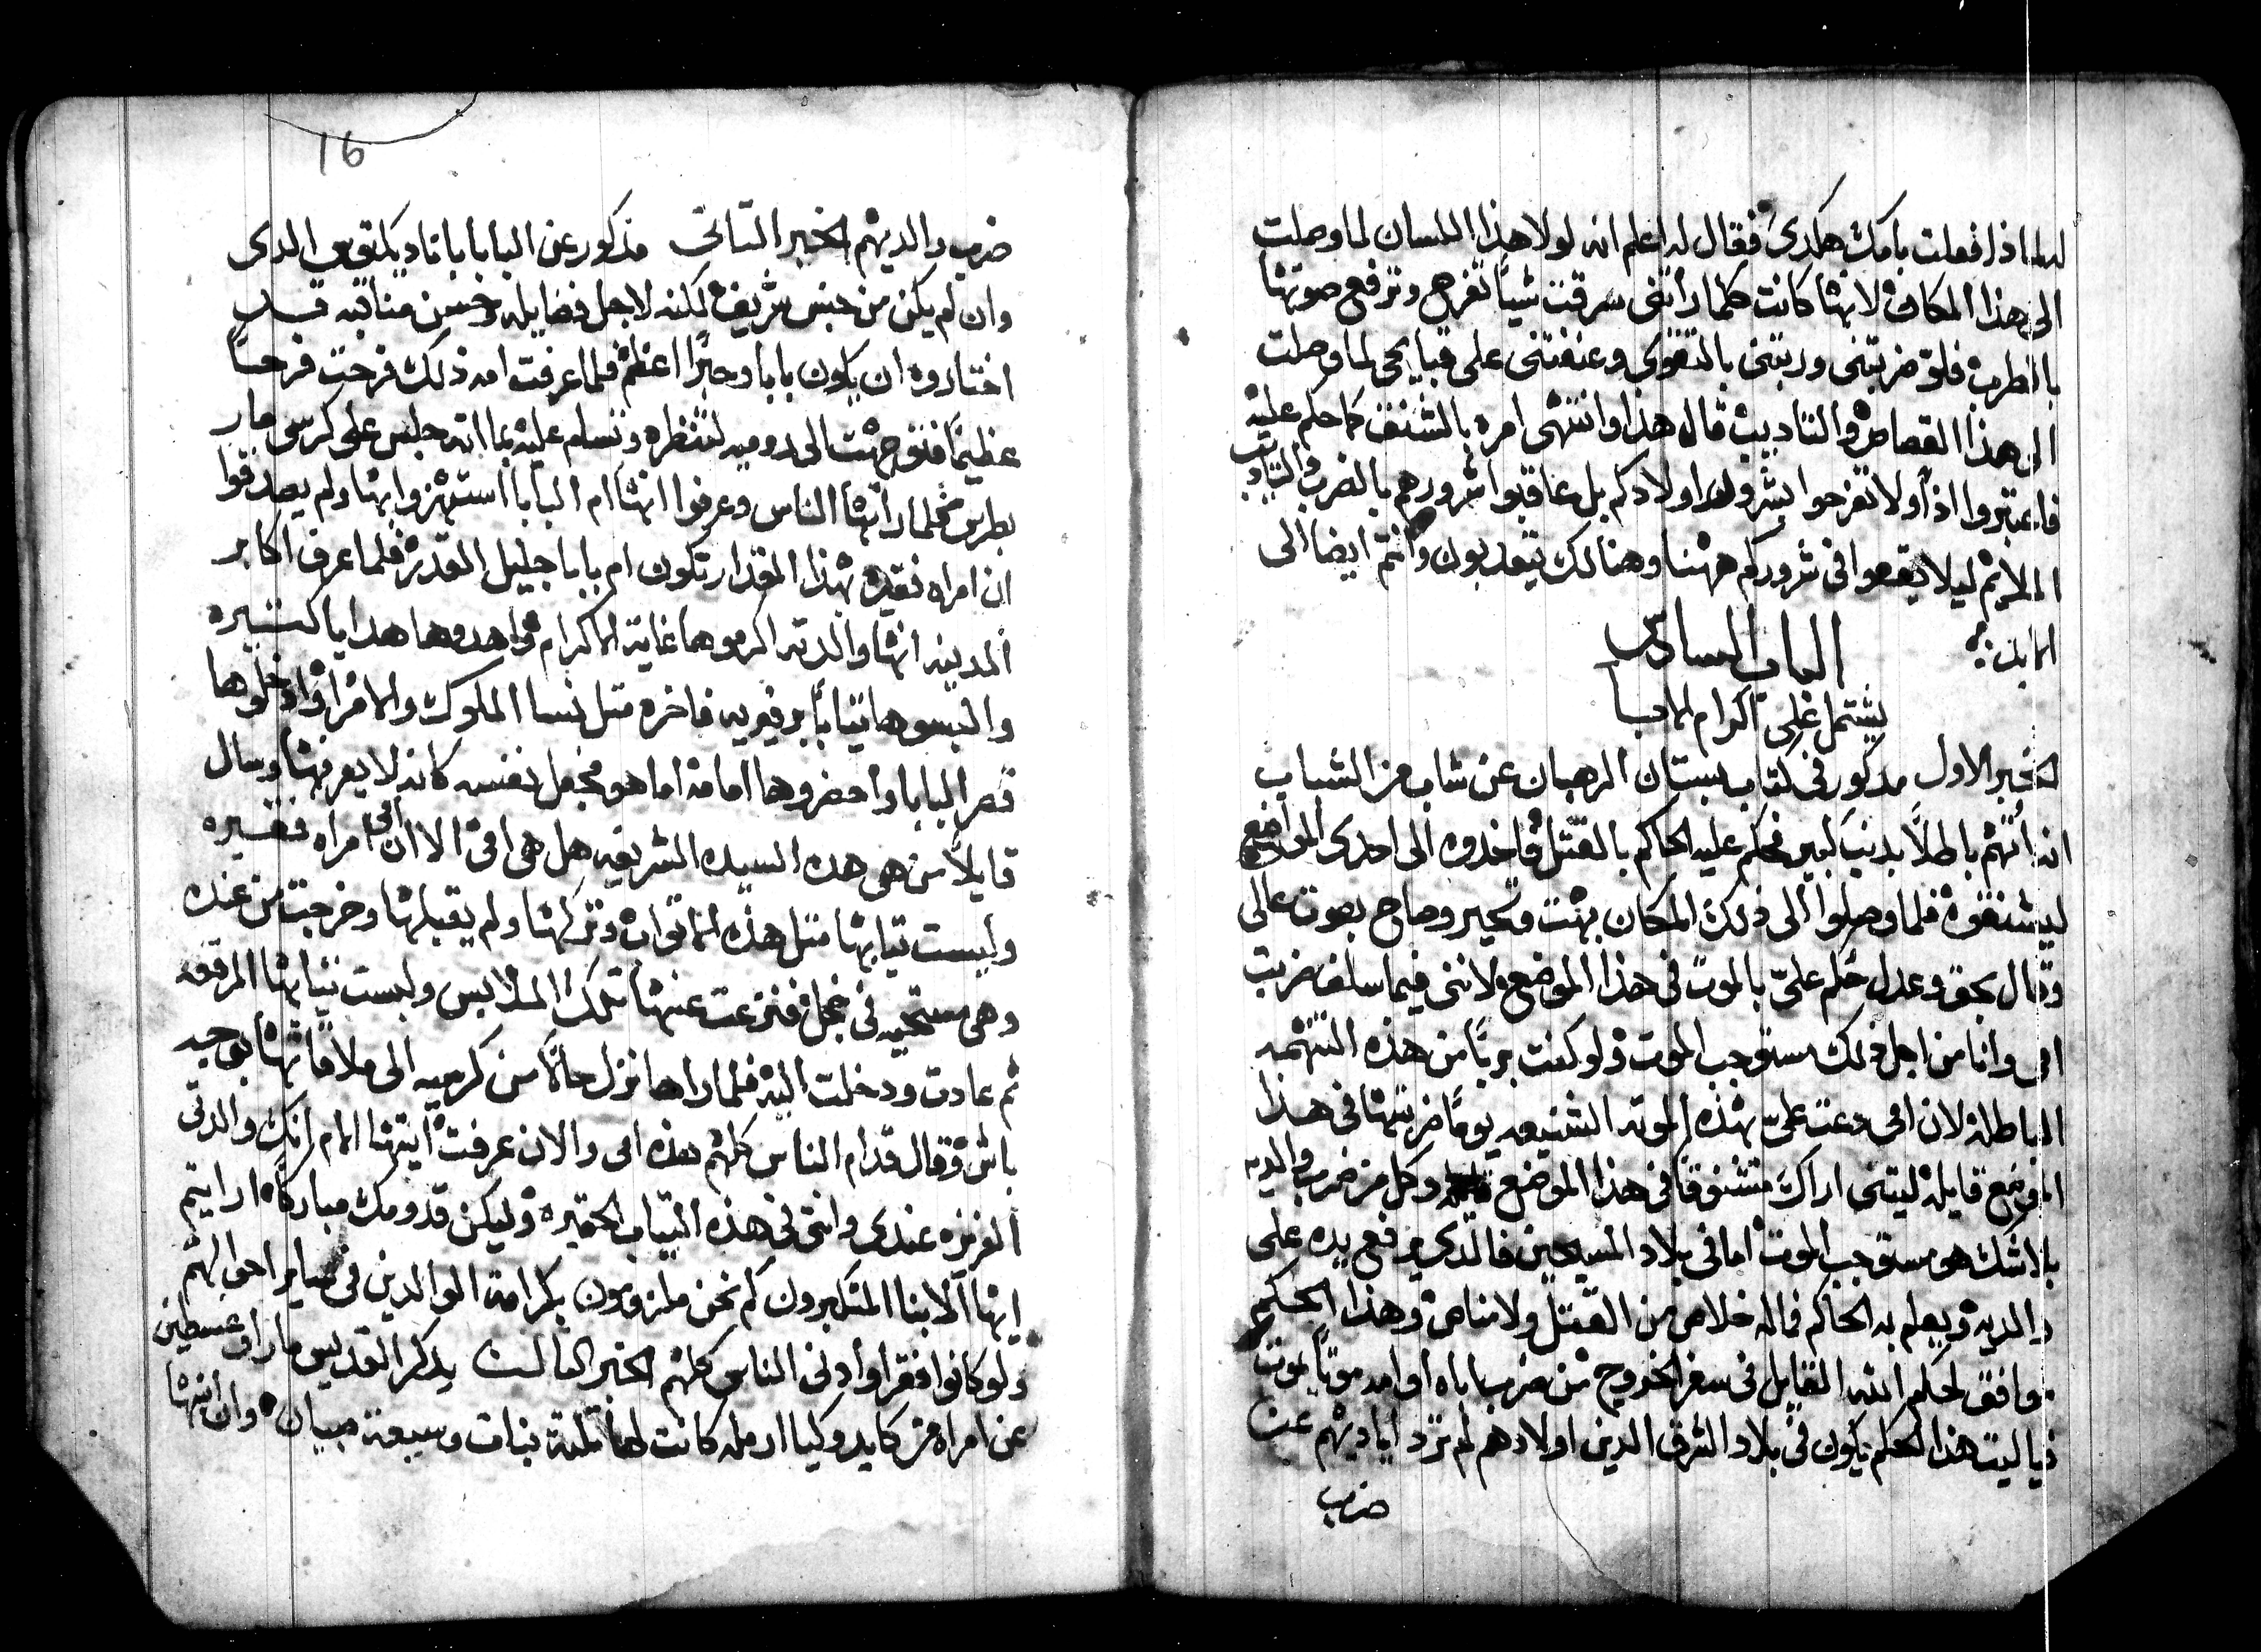 له لماذا فعلت بامك هكدى فقال له اعلم انه لولا هذا اللسان لما وصلت
الى هذا المكان لانها كانت كلما راتنى سرقت شيًا تفرح وترفع صوتها
بالطرب فلو ضربتنى وربتنى بالتقوى وعنفتنى على قبايحى لما وصلت
الى هذا القصاص والتاديب قال هذا وانتهى امره بالشنف كما حكم عليه
فاعتبروا اذًا ولا تفرحوا بشرور اولادكم بل عاقبوا شرورهم بالضرب والتاديب
الملايم ليلا يقعوا فى شروركم ههنا وهنالك يتعدبون وانتم ايضا الى
الابد
الباب السادس
يشتمل على اكرام الابا
الخبر الاول مدكور فى كتاب بستان الرهبان عن شاب من الشباب
انه اُتهم باطلًا بدنب كبير فحكم عليه الحاكم بالقتل فاخدوه الى احدى المواضع
ليشنقوه فلما وصلوا الى ذلك المكان بهت وتحير وصاح بصوت عالى
وقال بحق وعدل حُكم علىّ بالموت فى هذا الموضع لاننى فيما سلف ضربت
امى وانا من اجل ذلك مستوجب الموت ولو كنت بريًا من هذه التهمه
الباطله لان امى دعت علىّ بهذه الموته الشنيعه يومًا ضربتها فى هذا
الموضع قايله ليتنى اراك متشنوقًا فى هذا الموضع وكل من ضرب والديه
بلا شك هو مستوجب الموت اما فى بلاد المسيحيين فالدى يرفع يده على
والديه ويعلم به الحاكم فما له خلاص من القتل ولا مناص وهذا الحكم
موافق لحكم الله القايل فى سفر الخروج من ضرب اباه او امه موتًا يموت
فيا ليت هذا الحكم يكون فى بلاد الشرق الدين اولادهم لم ترد اياديهم عن
ضرب
16
ضرب والديهم الخبر التانى مدكور عن البابا باناديكتوس الدى
وان لم يكن من جنس شريف لكنه لاجل فضايله وحسن مناقبه قد
اختاروه ان يكون بابا وحبرًا اعظم فلما عرفت امه ذلك فرحت فرحًا
عظيمًا فتوجهت الى روميه لتنظره وتسلم عليه بما انه جلس على كرسى مار
بطرس فحلما راتها الناس وعرفوا انها ام البابا استهزوا بها ولم يصدقوا
ان امراه فقيره بهذا المقدار تكون ام بابا جليل القدر فلما عرف اكابر
المدينه انها والدته اكرموها غاية الاكرام واهدوها هدايا كتيره
والبسوها تيابًا برفيريه فاخره متل نسا الملوك والامرا وادخلوها
قصر البابا واحضروها امامه اما هو فجعل نفسه كانه لا يعرفها وسال
قايلًا من هى هده السيده الشريفه هل هى امى الا ان امى امراه فقيره
وليست تيابها متل هذه الاتواب وتركها ولم يقبلها وخرجت من عنده
وهى مستحيه فى خجل فنزعت عنها تلك الملابس ولبست تيابها المرقعه
ثم عادت ودخلت اليه فلما راها نزل حالًا من كرسيه الى ملاقاتها بوجه
باش وقال قدام الناس كلهم هذه امى والان عرفت ايتها الام انك والدتى
العزيزه عندى وانتى فى هذه التياب الحقيره وليكن قدومك مباركًا ارايتم
ايها الابنا المتكبرون كم نحن ملزومون بكرامة الوالدين فى ساير احوالهم
ولو كانوا فقرا وادنى الناس كلهم الخبر التالت يدكر القديس مار اوغسطين
عن امراه من كابدوكيا ارمله كانت لها تلته بنات وسبعة صبيان وان ابنها